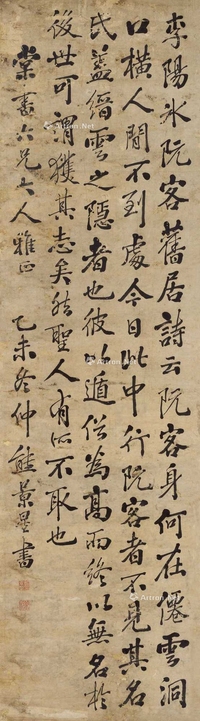 李陽冰阮客舊居詩云阮客身何在僊雲洞
口橫人間不到處今日此中行阮客者不見其名
氏蓋縉雲之隱者也彼以遁俗為高而終以無名於
後世可謂獲其志矣然聖人有所不取也
棠書六兄大人雅正 乙未冬仲熊景星書